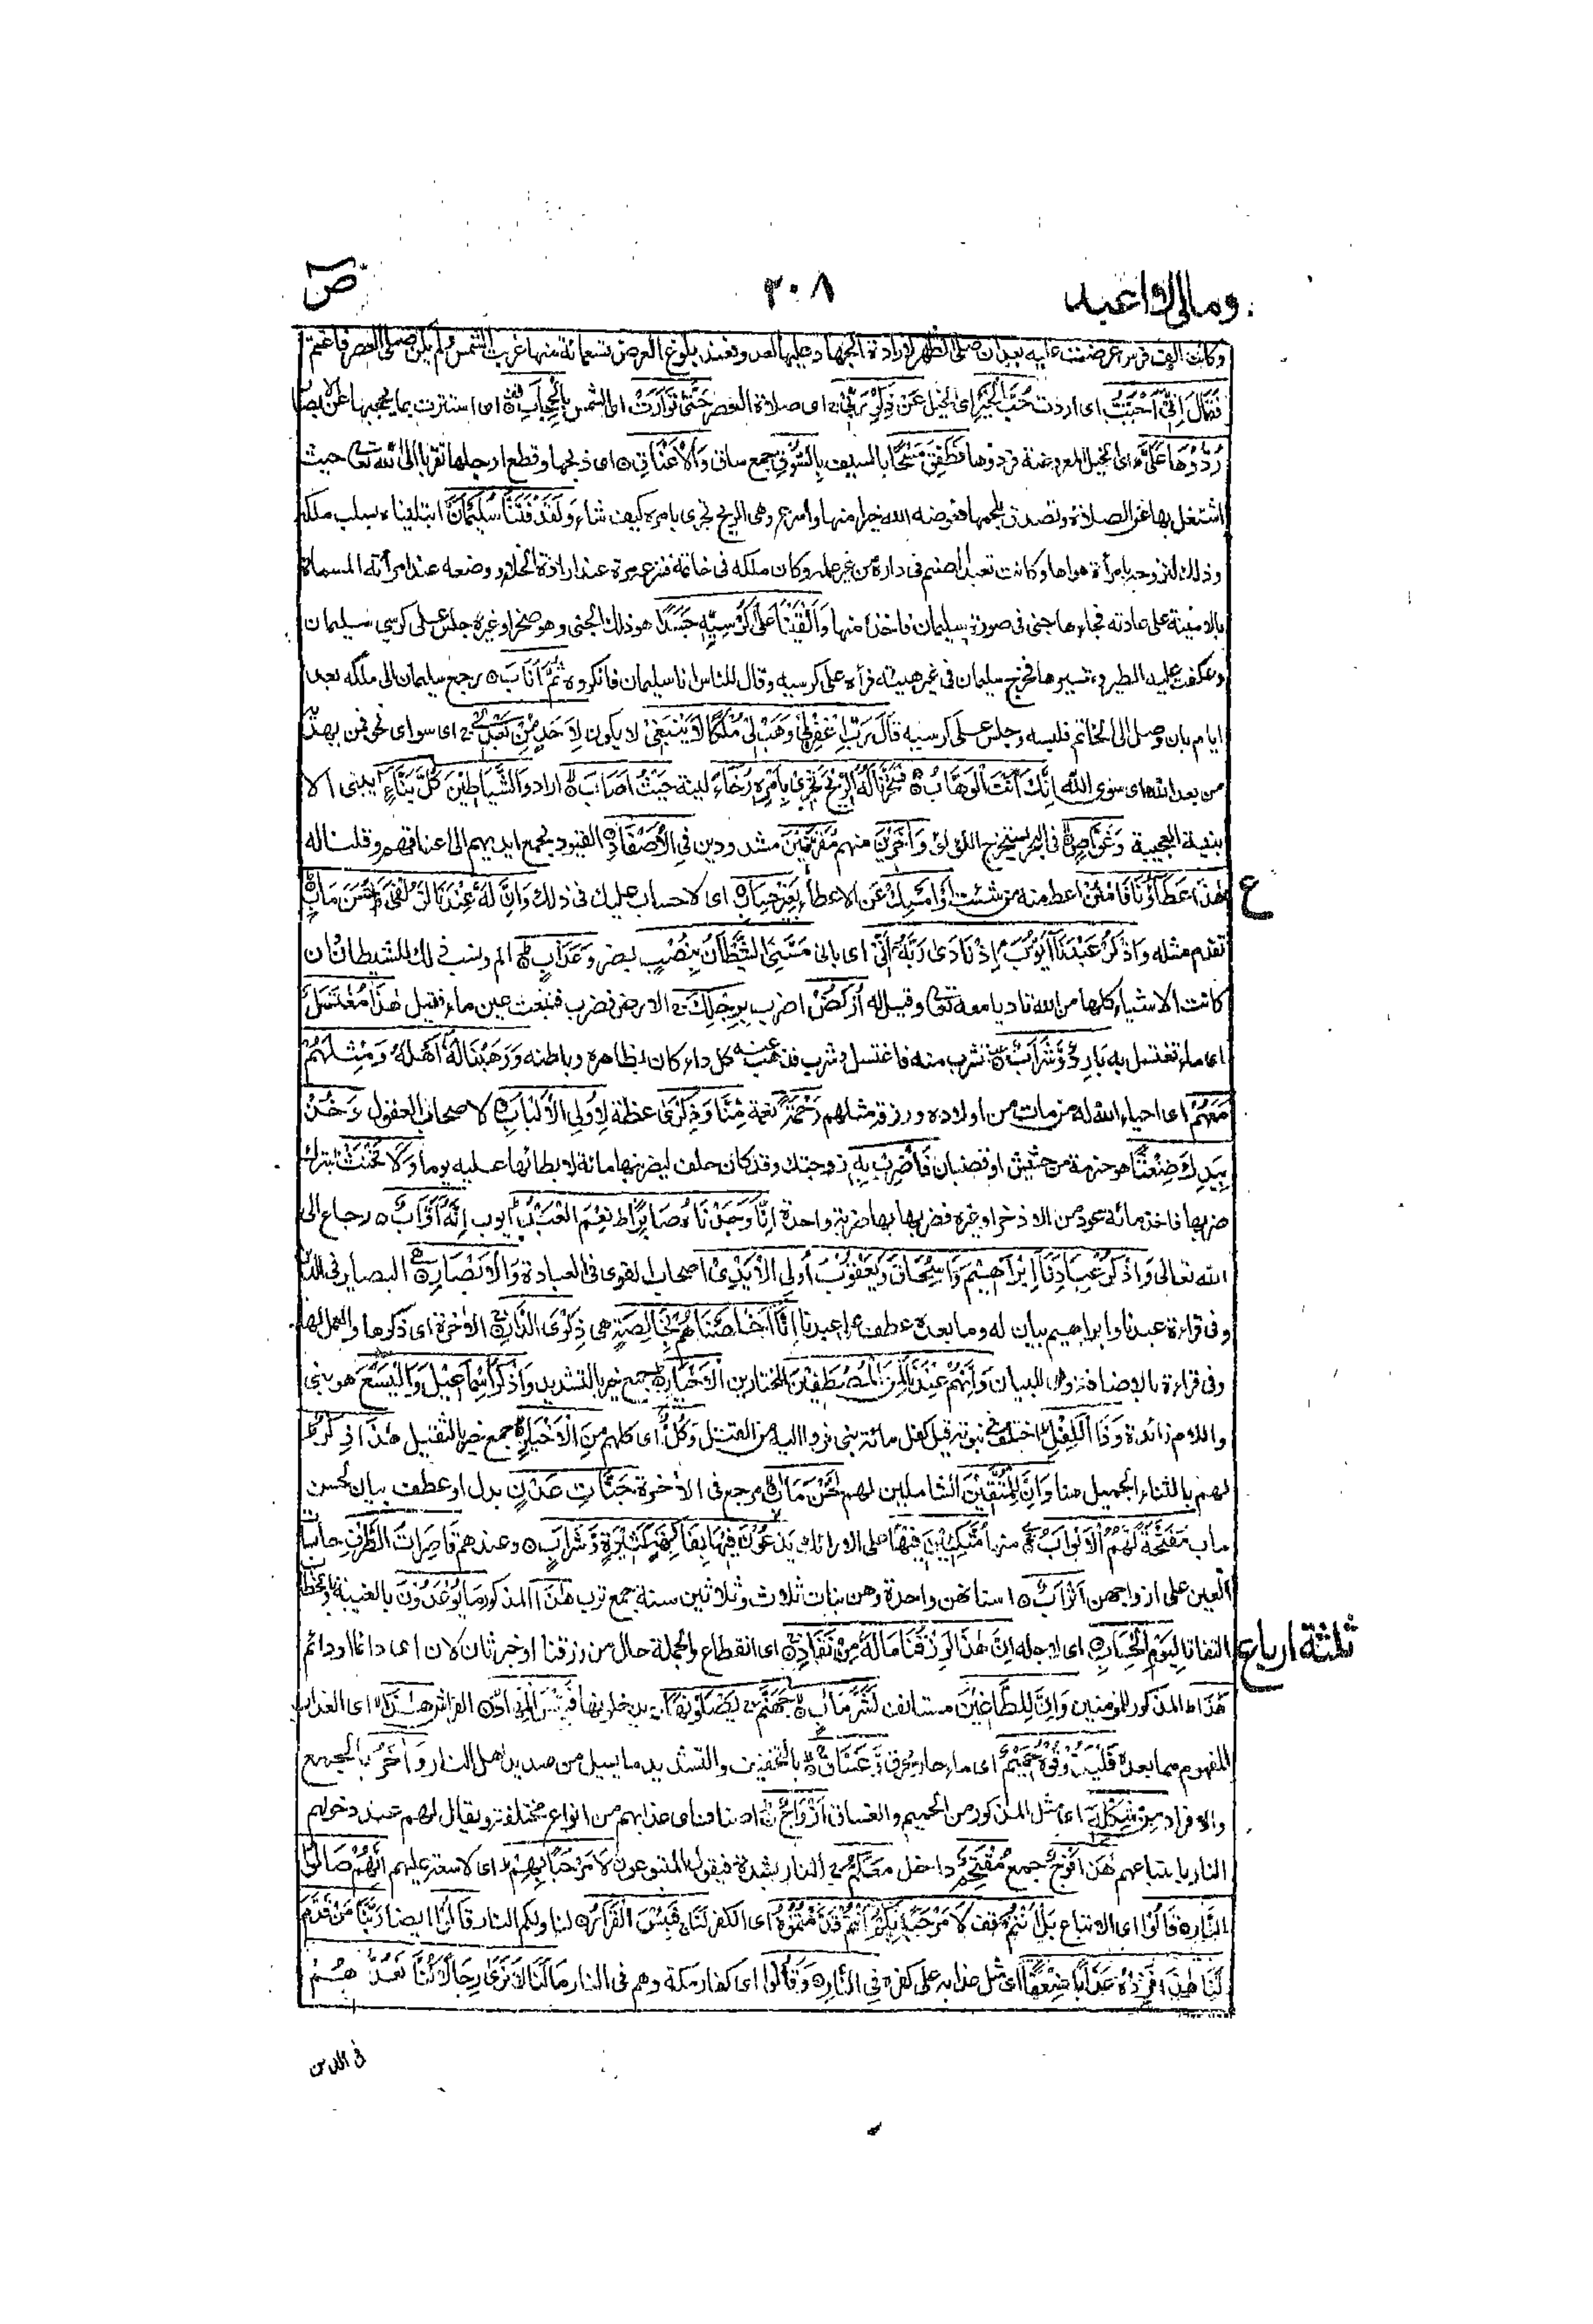 ومالى لا اعبد ٣٠٨ ص
وكانت الف فرس عرضت عليه بعد ان صلى الظهر لارادة الجهاد عليها العدو فعند بلوغ العرض تسعمائة منها غربت الشمس ولم يكن صلى العصر فاغتم
فَقَالَ اِنِّىْٓ اَحْبَبْتُ اى اردت حُبَّ الْخَيْرِ اى الخيل عَنْ ذِكْرِ رَبِّىْ اى صلاة العصر حَتّٰى تَوَارَتْ اى الشمس بِالْحِجَابِ اى استترت بما يحجبها عن الابصار
رُدُّوْهَا عَلَىَّ اى الخيل المعروضة فردوها فَطَفِقَ مَسْحًا بالسيف بِالسُّوْقِ جمع ساق وَالْاَعْنَاقِ اى ذبحها وقطع ارجلها تقربا الى الله تعالى حيث
اشتغل بها عن الصلاة وتصدق بلحمها فعوضه الله خيرا منها واسرع وهى الريح تجرى بامره كيف شاء وَلَقَدْ فَتَنَّا سُلَيْمَانَ ابتليناه بسلب ملكه
وذلك لتزوجه بامرأة هواها وكانت تعبد الصنم فى داره من غير علمه وكان ملكه فى خاتمه فنزعه مرة عند ارادة الخلاء ووضعه عند امرأته المسماة
بالامينة على عادته فجاءها جنى فى صورة سليمان فاخذه منها وَاَلْقَيْنَا عَلٰى كُرْسِيِّهٖ جَسَدًا هو ذلك الجنى وهو صخر او غيره جلس على كرسي سليمان
وعكفت عليه الطير وغيرها فخرج سليمان فى غير هيئته فرآه على كرسيه وقال للناس انا سليمان فانكروه ثُمَّ اَنَابَ رجع سليمان الى ملكه بعد
ايام بان وصل الى الخاتم فلبسه وجلس على كرسيه قَالَ رَبِّ اغْفِرْ لِىْ وَهَبْ لِىْ مُلْكًا لَّا يَنْبَغِىْ لا يكون لِاَحَدٍ مِّنْ بَعْدِىْ اى سواى نحو فمن يهديه
من بعد الله اى سوى الله اِنَّكَ اَنْتَ الْوَهَّابُ فَسَخَّرْنَا لَهُ الرِّيْحَ تَجْرِىْ بِاَمْرِهٖ رُخَآءً لينة حَيْثُ اَصَابَ اراد وَالشَّيَاطِيْنَ كُلَّ بَنَّآءٍ يبنى الا
بنية العجيبة وَغَوَّاصٍ فى البحر يستخرج اللؤلؤ وَاٰخَرِيْنَ منهم مُقَرَّنِيْنَ مشدودين فِى الْاَصْفَادِ القيود بجمع ايديهم الى اعناقهم وقلنا له
هٰذَا عَطَآؤُنَا فَامْنُنْ اعط منه من شئت اَوْ اَمْسِكْ عن الاعطاء بِغَيْرِ حِسَابٍ اى لا حساب عليك فى ذلك وَاِنَّ لَهٗ عِنْدَنَا لَزُلْفٰى وَحُسْنَ مَاٰبٍ ع
تقدم مثله وَاذْكُرْ عَبْدَنَآ اَيُّوْبَ اِذْ نَادٰى رَبَّهٗٓ اَنِّىْ اى بانى مَسَّنِىَ الشَّيْطٰنُ بِنُصْبٍ بضر وَعَذَابٍ الم ونسب ذلك للشيطان وان
كانت الاشياء كلها من الله تاديا معه تعالى وقيل له اُرْكُضْ اضرب بِرِجْلِكَ الارض فضرب فنبعت عين ماء فقيل هٰذَا مُغْتَسَلٌ
اى ماء تغتسل به بَارِدٌ وَّشَرَابٌ تشرب منه فاغتسل وشرب فذهب عنه كل داء كان بظاهره وباطنه وَوَهَبْنَا لَهٗٓ اَهْلَهٗ وَمِثْلَهُمْ
مَعَهُمْ اى احياء الله له من مات من اولاده ورزقه مثلهم رَحْمَةً نعمة مِّنَّا وَذِكْرٰى عظة لِاُولِى الْاَلْبَابِ لاصحاب العقول وَخُذْ
بِيَدِكَ ضِغْثًا هو حزمة من حشيش او قضبان فَاضْرِبْ بِهٖ زوجتك وقد كان حلف ليضربنها مائة لابطائها عليه يوما وَلَا تَحْنَثْ بترك
ضربها فاخذ مائة عود من الاذخر او غيره فضربها بها ضربة واحدة اِنَّا وَجَدْنَاهُ صَابِرًا ط نِعْمَ الْعَبْدُ ايوب اِنَّهٗٓ اَوَّابٌ رجاع الى
الله تعالى وَاذْكُرْ عِبَادَنَآ اِبْرَاهِيْمَ وَاِسْحَاقَ وَيَعْقُوْبَ اُولِى الْاَيْدِىْ اصحاب القوى فى العبادة وَالْاَبْصَارِ البصاير فى الدين
وفى قراءة عبدنا وابراهيم بيان له وما بعده عطف على عبدنا اِنَّآ اَخْلَصْنَاهُمْ بِخَالِصَةٍ هى ذِكْرَى الدَّارِ الاخرة اى ذكرها والعمل لها
وفى قراءة بالاضافة وهى للبيان وَاِنَّهُمْ عِنْدَنَا لَمِنَ الْمُصْطَفَيْنَ المختارين الْاَخْيَارِ جمع خير بالتشديد وَاذْكُرْ اِسْمَاعِيْلَ وَالْيَسَعَ هو نبى
واللام زائدة وَذَا الْكِفْلِ اختلف فى نبوته قيل كفل مائة نبى فروا اليه من القتل وَكُلٌّ اى كلهم مِّنَ الْاَخْيَارِ جمع خير بالتثقيل هٰذَا ذِكْرٌ ط
لهم بالثناء الجميل هنا وَاِنَّ لِلْمُتَّقِيْنَ الشاملين لهم لَحُسْنَ مَاٰبٍ مرجع فى الاخرة جَنَّاتِ عَدْنٍ بدل او عطف بيان لحسن
ماب مُفَتَّحَةً لَّهُمُ الْاَبْوَابُ منها مُتَّكِئِيْنَ فِيْهَا على الارائك يَدْعُوْنَ فِيْهَا بِفَاكِهَةٍ كَثِيْرَةٍ وَّشَرَابٍ وَعِنْدَهُمْ قَاصِرَاتُ الطَّرْفِ حابسات
العين على ازواجهن اَتْرَابٌ اسنانهن واحدة وهن بنات ثلاث وثلاثين سنة جمع ترب هٰذَا المذكور مَا يُوْعَدُوْنَ بالغيبة وبالخطاب
التفاتا لِيَوْمِ الْحِسَابِ اى لاجله اِنَّ هٰذَا لَرِزْقُنَا مَا لَهٗ مِنْ نَّفَادٍ اى انقطاع والجملة حال من رزقنا او خبر ثان لان اى دائما او دائم ثلثة ارباع
هٰذَا ط المذكور للمؤمنين وَاِنَّ لِلطَّاغِيْنَ مستانف لَشَرَّ مَاٰبٍ جَهَنَّمَ يَصْلَوْنَهَا يدخلونها فَبِئْسَ الْمِهَادُ الفراش هٰذَا اى العذاب
المفهوم مما بعده فَلْيَذُوْقُوْهُ حَمِيْمٌ اى ماء حار محرق وَّغَسَّاقٌ بالتخفيف والتشديد ما يسيل من صديد اهل النار وَاٰخَرُ بالجمع
والافراد مِنْ شَكْلِهٖٓ اى مثل المذكور من الحميم والغساق اَزْوَاجٌ اصناف اى عذابهم من انواع مختلفة ويقال لهم عند دخولهم
النار باتباعهم هٰذَا فَوْجٌ جمع مُّقْتَحِمٌ داخل مَّعَكُمْ النار بشدة فيقول المتبوعون لَا مَرْحَبًا بِهِمْ اى لا سعة عليهم اِنَّهُمْ صَالُوا
النَّارِ قَالُوْا اى الاتباع بَلْ اَنْتُمْ قف لَا مَرْحَبًا بِكُمْ اَنْتُمْ قَدَّمْتُمُوْهُ اى الكفر لَنَا فَبِئْسَ الْقَرَارُ لنا ولكم النار قَالُوْا ايضا رَبَّنَا مَنْ قَدَّمَ
لَنَا هٰذَا فَزِدْهُ عَذَابًا ضِعْفًا اى مثل عذابه على كفره فِى النَّارِ وَقَالُوْا اى كفار مكة وهم فى النار مَا لَنَا لَا نَرٰى رِجَالًا كُنَّا نَعُدُّهُمْ
فى الدين